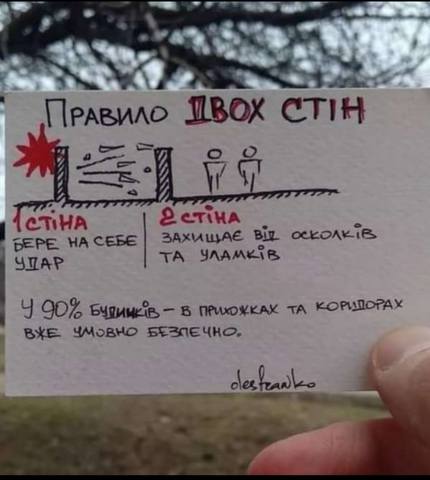 Правило ДВОХ СТІН
1 СТІНА
БЕРЕ НА СЕБЕ
УДАР
2 СТІНА
ЗАХИЩАЄ ВІД ОСКОЛКІВ
ТА УЛАМКІВ
У 90% БУДИНКІВ – В ПРИХОЖКАХ ТА КОРИДОРАХ
ВЖЕ УМОВНО БЕЗПЕЧНО.
desfranko